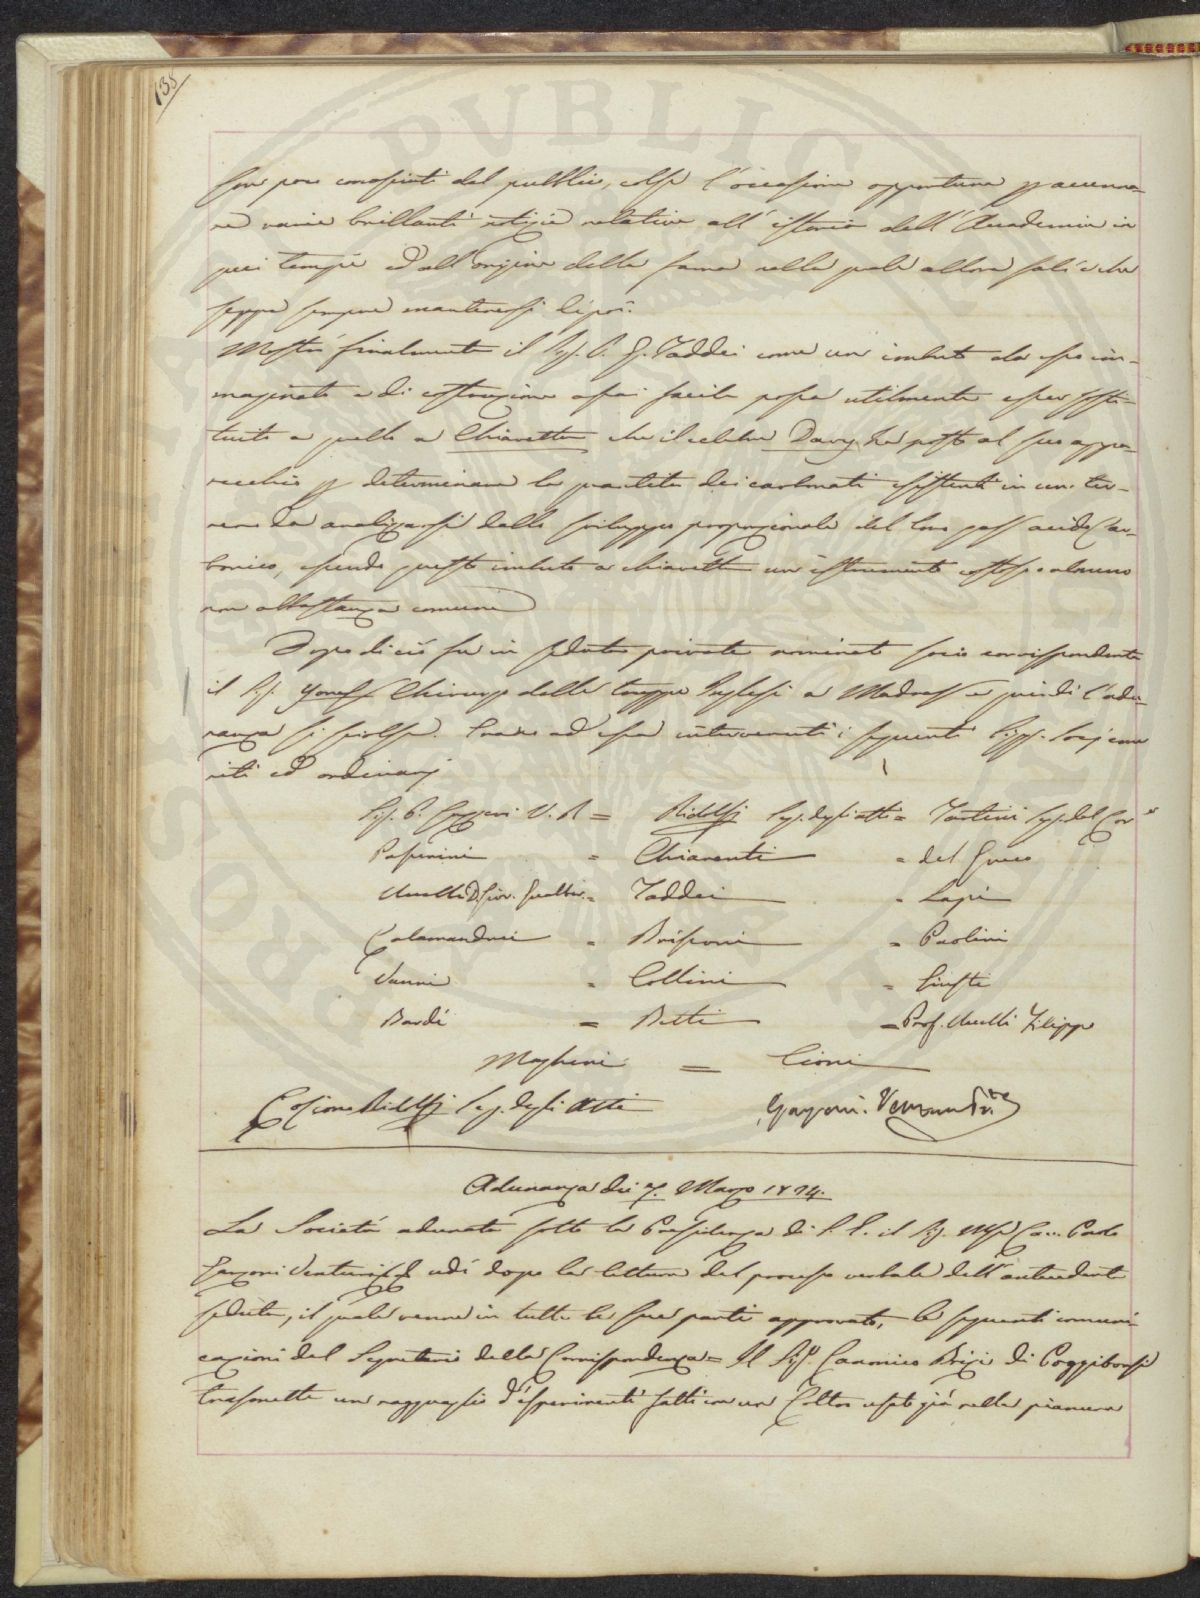 138
son poco conosciuti dal pubblico, colse l'occasione opportuna p accenna-
re varie brillanti notizie relative all'istoria dell'Accademia in
quei tempi ed all'origine della fama nella quale allora salì e che
seppe sempre mantenersi dipoi.
Mostrò finalmente il Sig. P. G. Taddei come un imbuto da esso im-
maginato e di costruzione assai facile possa utilmente esser sosti-
tuito a quello a Chiavetta che il celebre Davy ha posto al suo appa-
recchio p determinare la quantità dei carbonati esistenti in un ter-
reno da analizzarsi dallo sviluppo proporzionale del loro gass acido Car-
bonico, essendo questo imbuto a chiavetta un istrumento costoso o almeno
non abbastanza comune
Dopo di ciò fu in seduta privata nominato socio corrispondente
il Sig. Jones Chirurgo delle truppe Inglesi a Madrass e quindi l'adu-
nanza si sciolse. Erano ad essa intervenuti i seguenti Sigg. Socj eme-
riti ed ordinarj
Sig. P. Garzoni V. P. = Ridolfi Seg. degli atti = Tartini Seg. del Cor.
Passerini = Chiarenti = del Greco
Uccelli D. Giov. Gualber. = Taddei = Lapi
Calamandrei = Brisponi = Paolini
Vanni = Collini = Giusti
Bardi = Betti = Prof. Uccelli Filippo
Magheri = Cioni
Cosimo Ridolfi Seg. degli Atti Garzoni Venturi Pr.te
Adunanza dei 7. Marzo 1824.
La Società adunata sotto la Presidenza di S. E. il Sig. M.se Cav. Paolo
Garzoni Venturi udì dopo la lettura del processo verbale dell'antecedente
seduta, il quale venne in tutte le sue parti approvato, le seguenti comuni-
cazioni del Segretario della Corrispondenza = Il Sig. Canonico Brizi di Poggibonsi
trasmette un ragguaglio d'esperimenti fatti con un Coltro usato già nella pianura